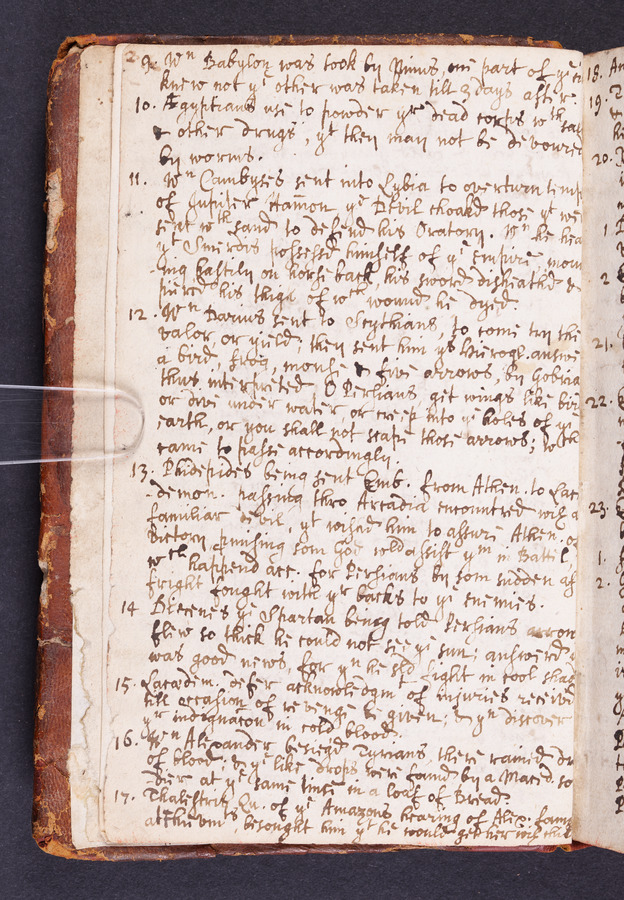 9. Wn Babylon was took by Ninus, one part of ye
knew not ye other was taken till 3 days after.
10. Ægyptians use to powder yr dead corps wth salt
& other drugs, yt they may not be devoured
by worms.
11. Wn Cambyses sent into Lybia to overturn
of Jupiter Hamon, ye Devil choakd those yt
sent wth sand to defend his Oratory. Wn he
yt Smerdis possessed himself of ye empire
-ing hastily on horse back, his sword disheathd &
pierc'd his thigh of wch wound he dyed.
12. Wn Darius sent to Scythians, to come try
valor, or yield; they sent him ys hierogl. answe
a bird, frog, mouse & five arrows, by Gobria
thus interpreted O Persians, get wings like bir
or dive under water, or creep into ye holes of ye
earth, or you shall not scape those arrows;
came to passe accordingly.
13. Phidipides being sent Emb. from Athen. to
-demon. passing thro Arcadia encountred wth a
familiar devil, yt wishd him to assure Athen. of
Victory som God wold assist ym in Battil,
wch happend acc. for Persians by som sudden
fright fought with yr backs to ye enemies.
14 Diecenes ye Spartan being told Persians arrow
flew so thick he could not see ye sun; answered
was good news, for yn he shd fight in cool shad
15. Lacædem. defer acknowledgmt of injuries received
till occasion of revenge be given; & yn discover
yr indignacon in cold blood.
16. Wn Alexander besieged Tyrians, there rained
of blood; & ye like drops were found by a Maced. so
dier at ye same time in a loaf of Bread.
17. Thalestris Qu. of ye Amazons hearing of Alex. fame
atchievmts, besought him yt he would
18. An
19.
20.
1
2
21.
22.
23.
1.
2.